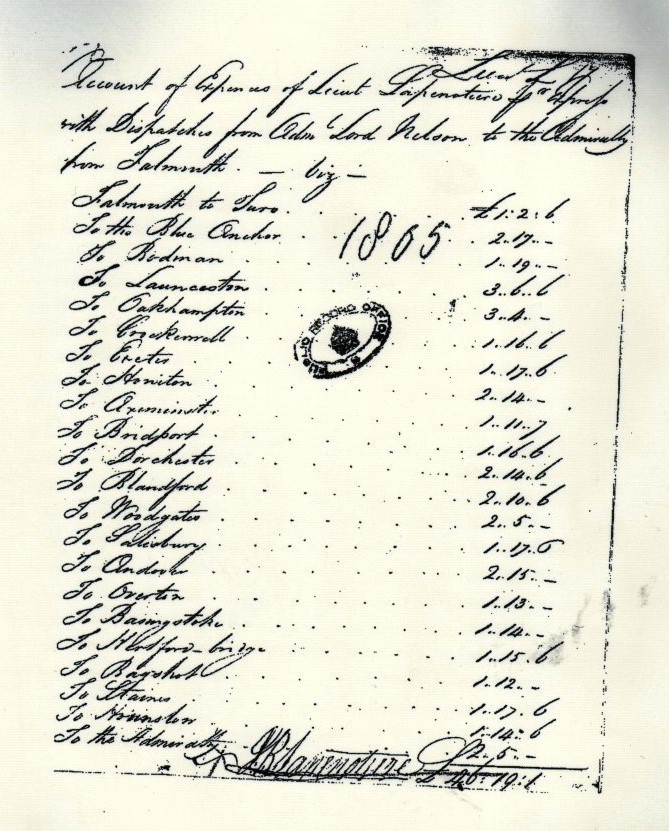 Account of Expences of Lieut Lapenotiere for Express
with Dispatches from Adml Lord Nelson to the Admiralty
from Falmouth. — viz —
1805
Falmouth to Turo £1:2:6
To the Blue Anchor 2..17..-
To Bodman 1..19..-
To Launceston 3..6..6
To Oakhampton 3..4..-
To Crockernwell 1..16..6
To Exeter 1..17..6
To Honiton 2..14..-
To Axminster 1..11..7
To Bridport 1..16..6
To Dorchester 2..14..6
To Blandford 2..10..6
To Woodgates 2..5..-
To Salisbury 1..17..6
To Andover 2..15..-
To Overton 1..13..-
To Basingstoke 1..14..-
To Hertford-bridge 1..15..6
To Bagshot 1..12..-
To Staines 1..17..6
To Hounslow 1..14..6
To the Admiralty 2..5..-
£46:19:1
Lapenotiere
PUBLIC RECORD OFFICE